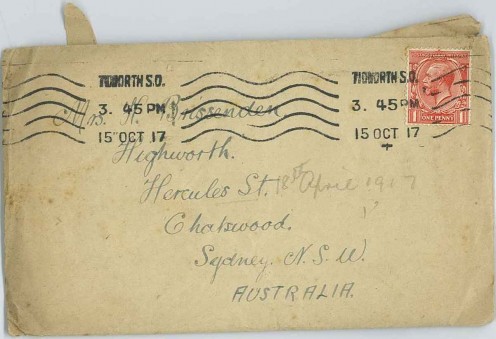 TIDWORTH S.O. TIDWORTH S.O.
3. 45 PM 3. 45 PM
15 OCT 17 15 OCT 17
1 ONE PENNY 1
Mrs. H. Brissenden.
Highworth.
Hercules St. 18th April 1917
Chatswood.
Sydney. N. S. W.
AUSTRALIA.